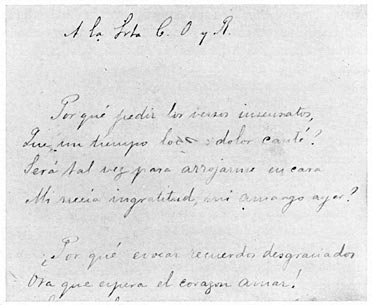 A la Srta C. O y R.
Por qué pedir los versos insensatos,
Que un tiempo loco de dolor canté?
Será tal vez para arrojarme en cara
Mi necia ingratitud, mi amargo ayer?
¿Por qué evocar recuerdos desgraciados
Ora que espera el corazon amar!